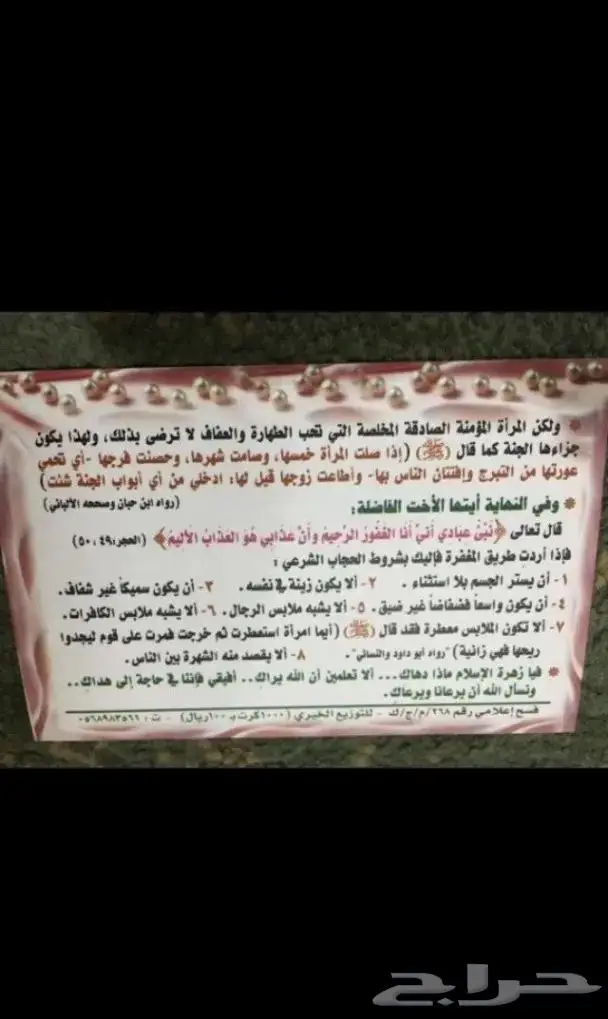 * ولكن المرأة المؤمنة الصادقة المخلصة التي تحب الطهارة والعفاف لا ترضى بذلك، ولهذا يكون
جزاءها الجنة كما قال (ﷺ) (إذا صلت المرأة خمسها، وصامت شهرها، وحصنت فرجها -أي تحمي
عورتها من التبرج وإفتتان الناس بها- وأطاعت زوجها قيل لها: ادخلي من أي أبواب الجنة شئت)
(رواه ابن حبان وصححه الألباني)
* وفي النهاية أيتها الأخت الفاضلة:
قال تعالى ﴿نَبِّئْ عِبَادِي أَنِّي أَنَا الْغَفُورُ الرَّحِيمُ وَأَنَّ عَذَابِي هُوَ الْعَذَابُ الْأَلِيمُ﴾ (الحجر:٤٩، ٥٠)
فإذا أردت طريق المغفرة فإليك بشروط الحجاب الشرعي:
١- أن يستر الجسم بلا استثناء. ٢- ألا يكون زينة في نفسه. ٣- أن يكون سميكاً غير شفاف.
٤- أن يكون واسعاً فضفاضاً غير ضيق. ٥- ألا يشبه ملابس الرجال. ٦- ألا يشبه ملابس الكافرات.
٧- ألا تكون الملابس معطرة فقد قال (ﷺ) (أيما امرأة استعطرت ثم خرجت فمرت على قوم ليجدوا
ريحها فهي زانية) "رواه أبو داود والنسائي". ٨- ألا يقصد منه الشهرة بين الناس.
* فيا زهرة الإسلام ماذا دهاك... ألا تعلمين أن الله يراك.. أفيقي فإننا في حاجة إلى هداك..
ونسأل الله أن يرعانا ويرعاك.
فسح إعلامي رقم ٢٦٨/م/ج/ك - للتوزيع الخيري (١٠٠٠ كرت بـ ١٠٠ ريال) - ت: ٠٥٦٨٩٨٣٥٦١
حراج